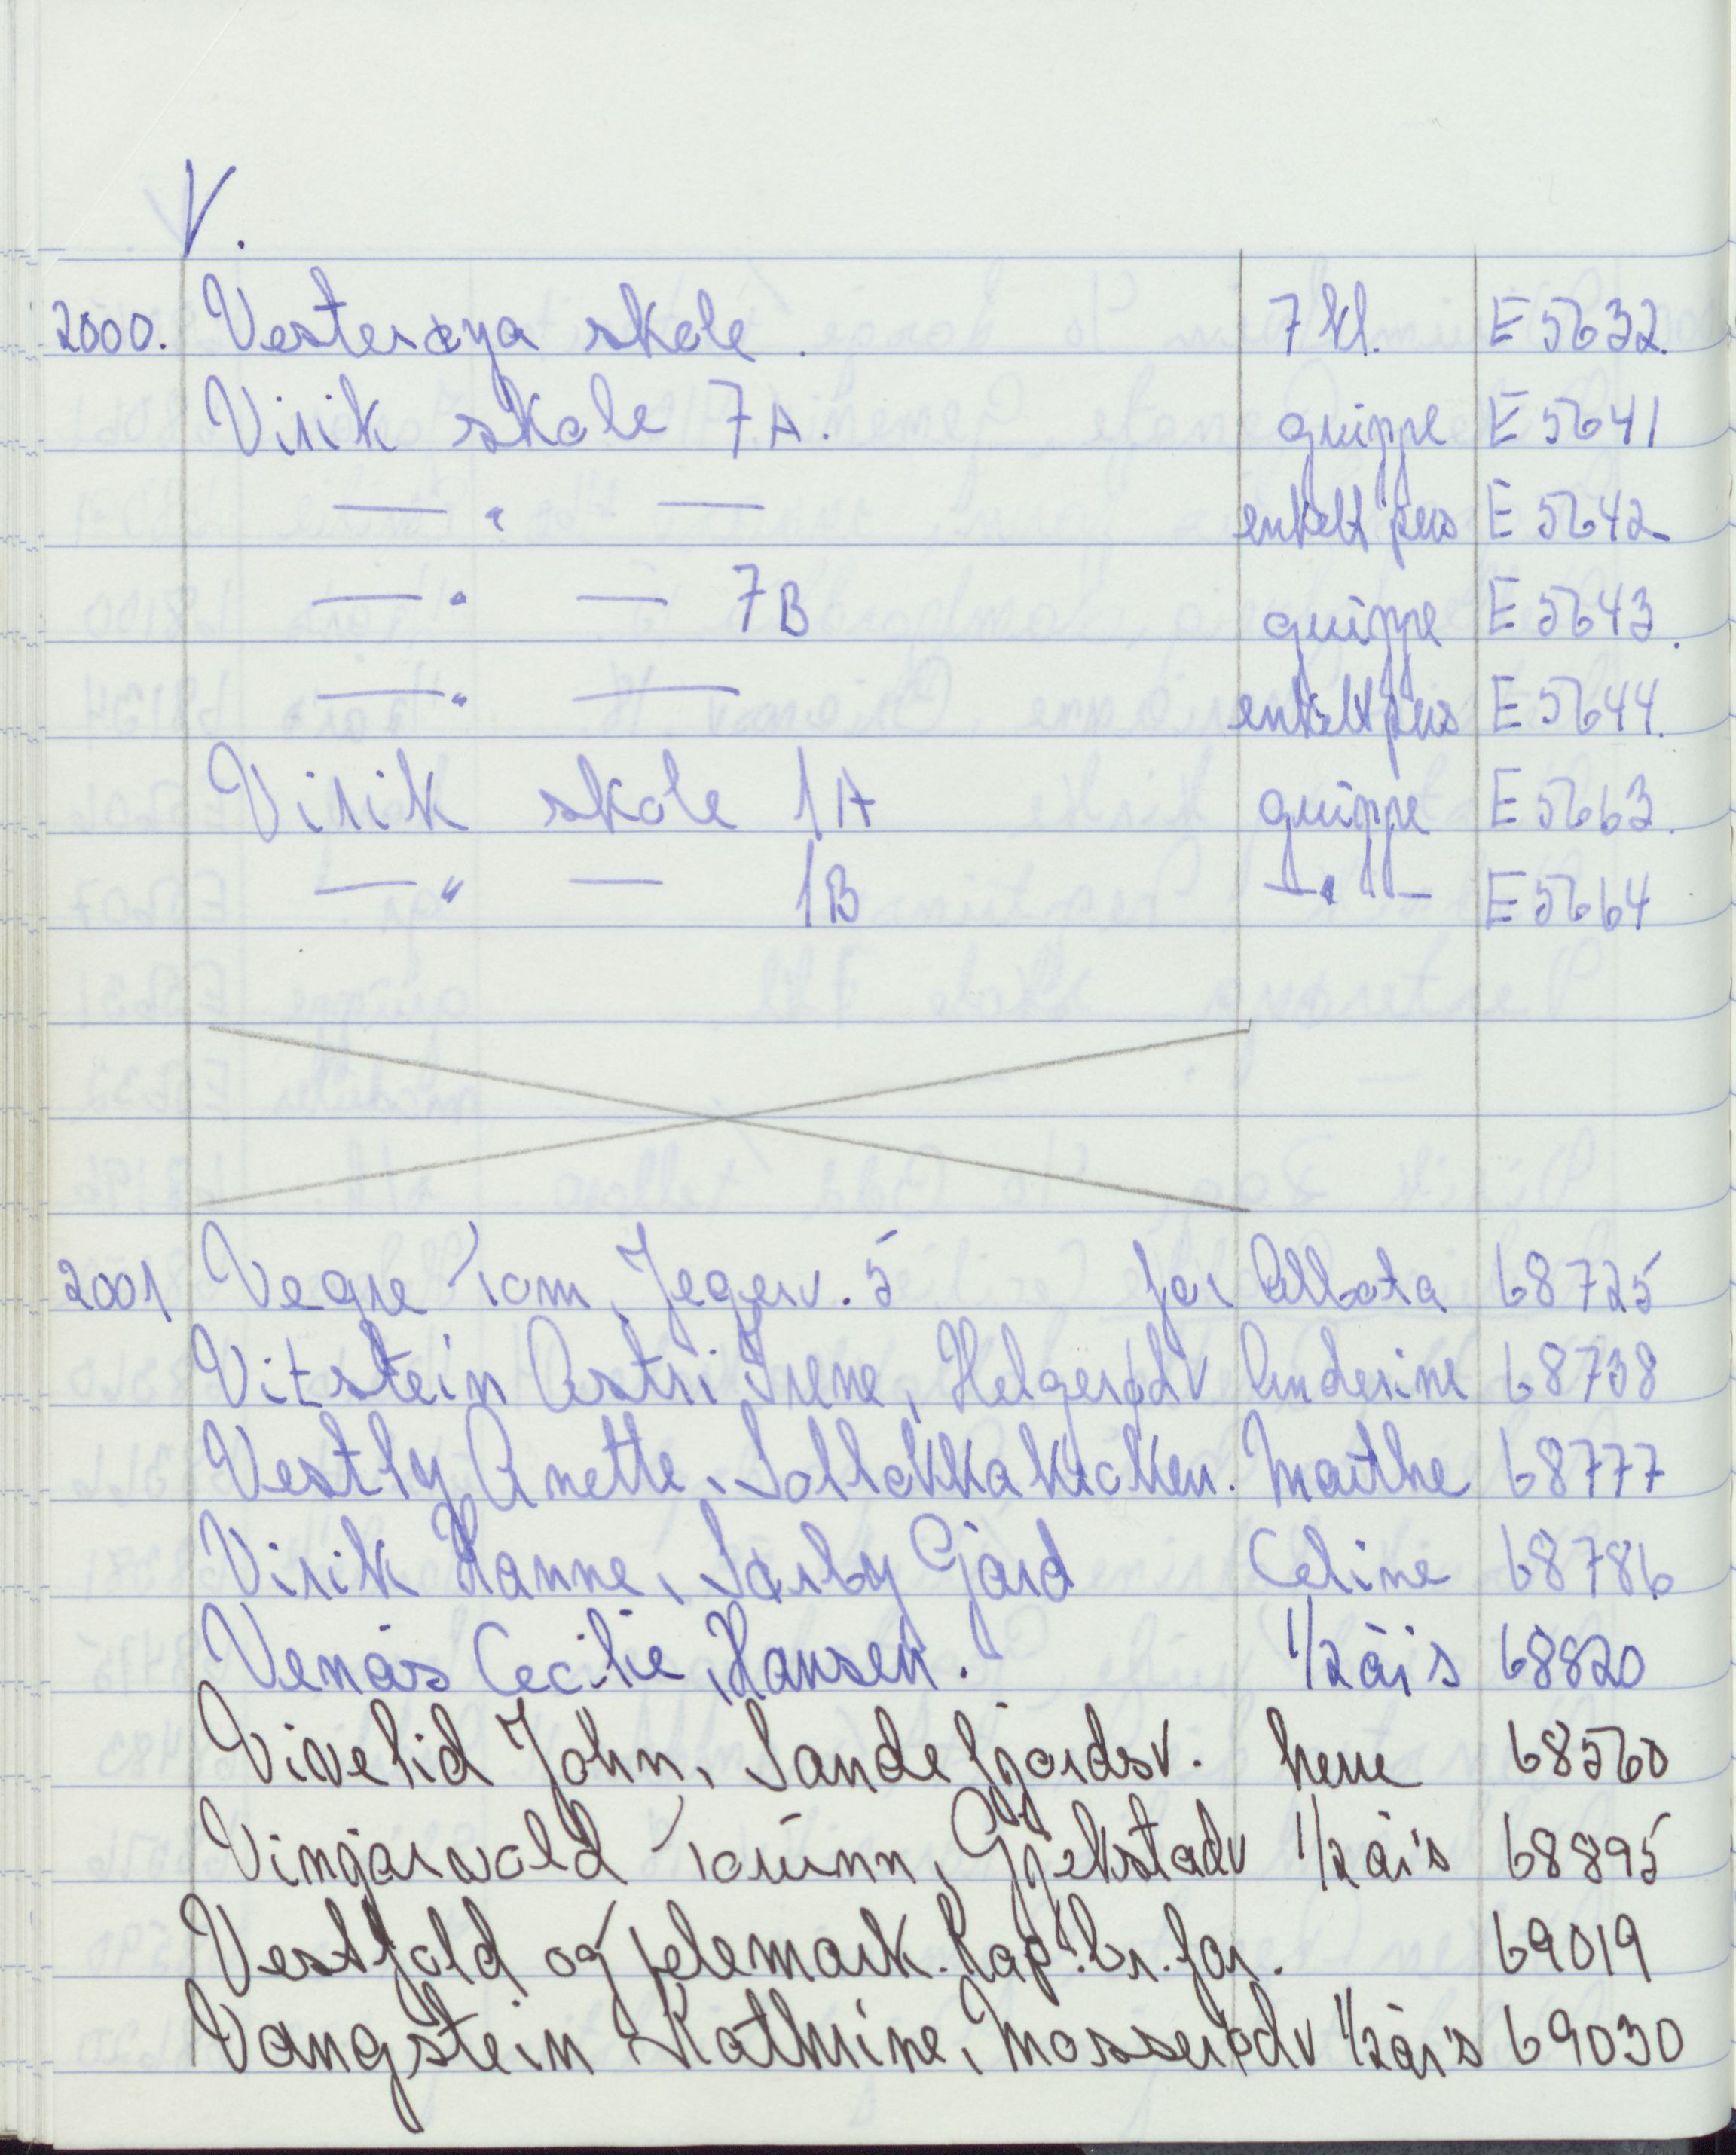 V.
2000. Vesterøya skole. 7 kl. E 5632.
Virik skole 7A. gruppe E 5641
— " — enkelt pers E 5642
— " — 7B gruppe E 5643.
— " — enkelt pers E 5644.
Virik skole 1A gruppe E 5663.
— " — 1B — " — E 5664
2001 Vegre Tom, Jegerv. 5 for 68725
Vitstein Astri Irene, Helgerødv Anderine 68738
Vestly Anette, Solløkkakroken. Marthe 68777
Virik Hanne, Sørby Gård Celine 68786
Venås Cecilie Hansen. 1/2 års 68820
Vivelid John, Sandefjordsv. herre 68560
Vingarwold Torunn, Gjekstadv 1/2 års 68895
Vestfold og telemark. Kap. br. for. 69019
Vangstein Kathrine, Mosserødv 1/2 års 69030